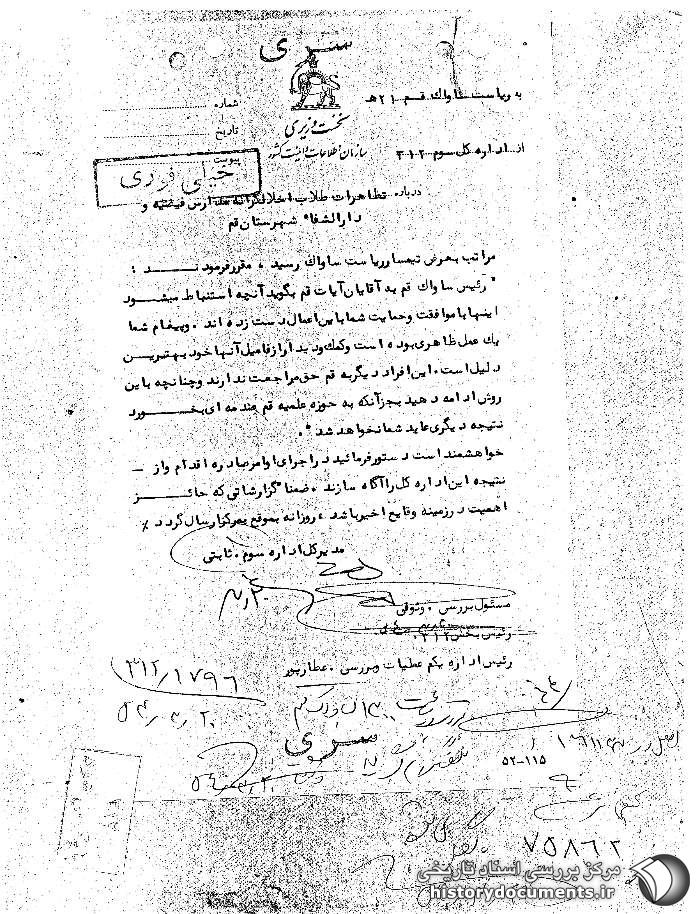 سری
به ریاست ساواک قم ۲۱ هـ
شماره
نخست وزیری
تاریخ
سازمان اطلاعات و امنیت کشور
از اداره کل سوم ۳۱۲
پیوست
خیلی فوری
درباره تظاهرات طلاب اخلالگرانه مدارس فیضیه و
دارالشفاء شهرستان قم
مراتب بعرض تیمسار ریاست ساواک رسید ، مقرر فرمودند :
"رئیس ساواک قم به آقایان آیات قم بگوید آنچه استنباط میشود
اینها با موافقت و حمایت شما باین اعمال دست زده اند . و پیغام شما
یک عمل ظاهری بوده است و کمک و دیدار از فامیل آنها خود بهترین
دلیل است . این افراد دیگر به قم حق مراجعت ندارند و چنانچه باین
روش ادامه دهید بجز آنکه به حوزه علمیه قم صدمه ای بخورد
نتیجه دیگری عاید شما نخواهد شد " .
خواهشمند است دستور فرمائید در اجرای اوامر صادره اقدام و از -
نتیجه این اداره کل را آگاه سازند . ضمنا" گزارشاتی که حائز
اهمیت در زمینه وقایع اخیر باشد ، روزانه بموقع بمرکز ارسال گردد ٪
مدیر کل اداره سوم . ثابتی
مسئول بررسی . وثوقی
رئیس بخش ۳۱۲
رئیس اداره یکم عملیات و بررسی . عطارپور
۳۱۲/۱۷۹۶
۵۴/۳/۲۰
سری
۵۲-۱۱۵
۷۵۸۶۲
مرکز بررسی اسناد تاریخی
historydocuments.ir